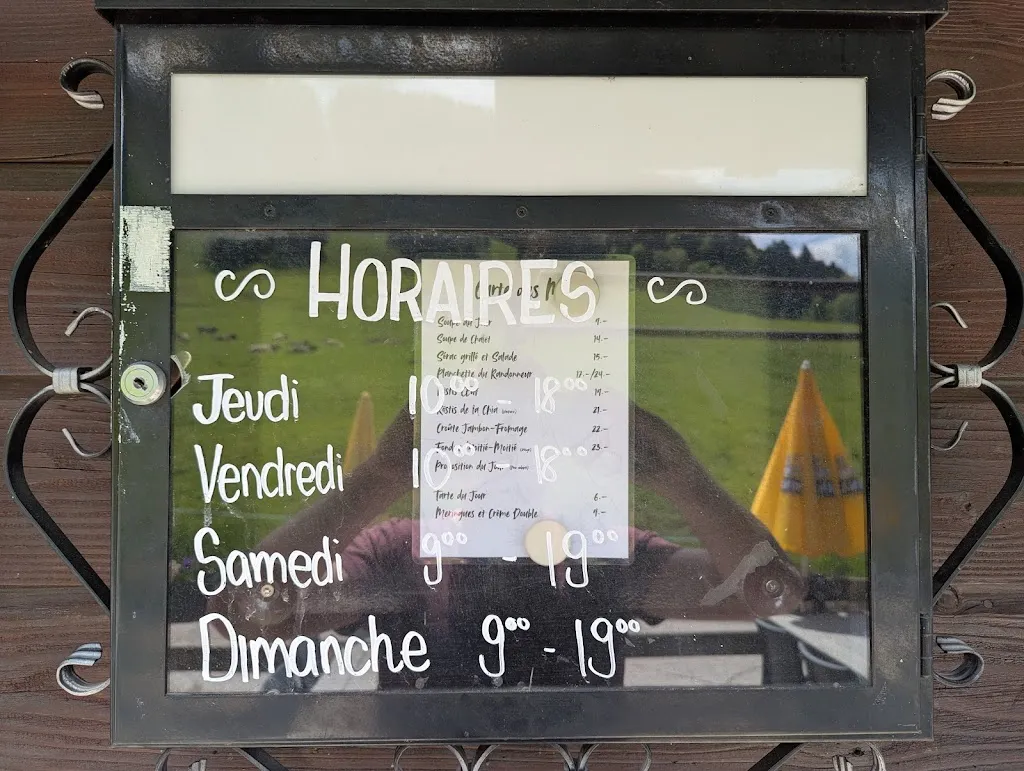 HORAIRES
Jeudi 10⁰⁰ - 18⁰⁰
Vendredi 10⁰⁰ - 18⁰⁰
Samedi 9⁰⁰ - 19⁰⁰
Dimanche 9⁰⁰ - 19⁰⁰
Carte des
Soupe du Jour 9.-
Soupe de Chalet 14.-
Sérac grillé et Salade 15.-
Planchette du Randonneur 17.-/24.-
Röstis 19.-
Röstis de la Chia 21.-
Croûte Jambon-Fromage 22.-
Fondue Moitié-Moitié 23.-
Proposition du Jour
Tarte du Jour 6.-
Meringues et Crème Double 9.-